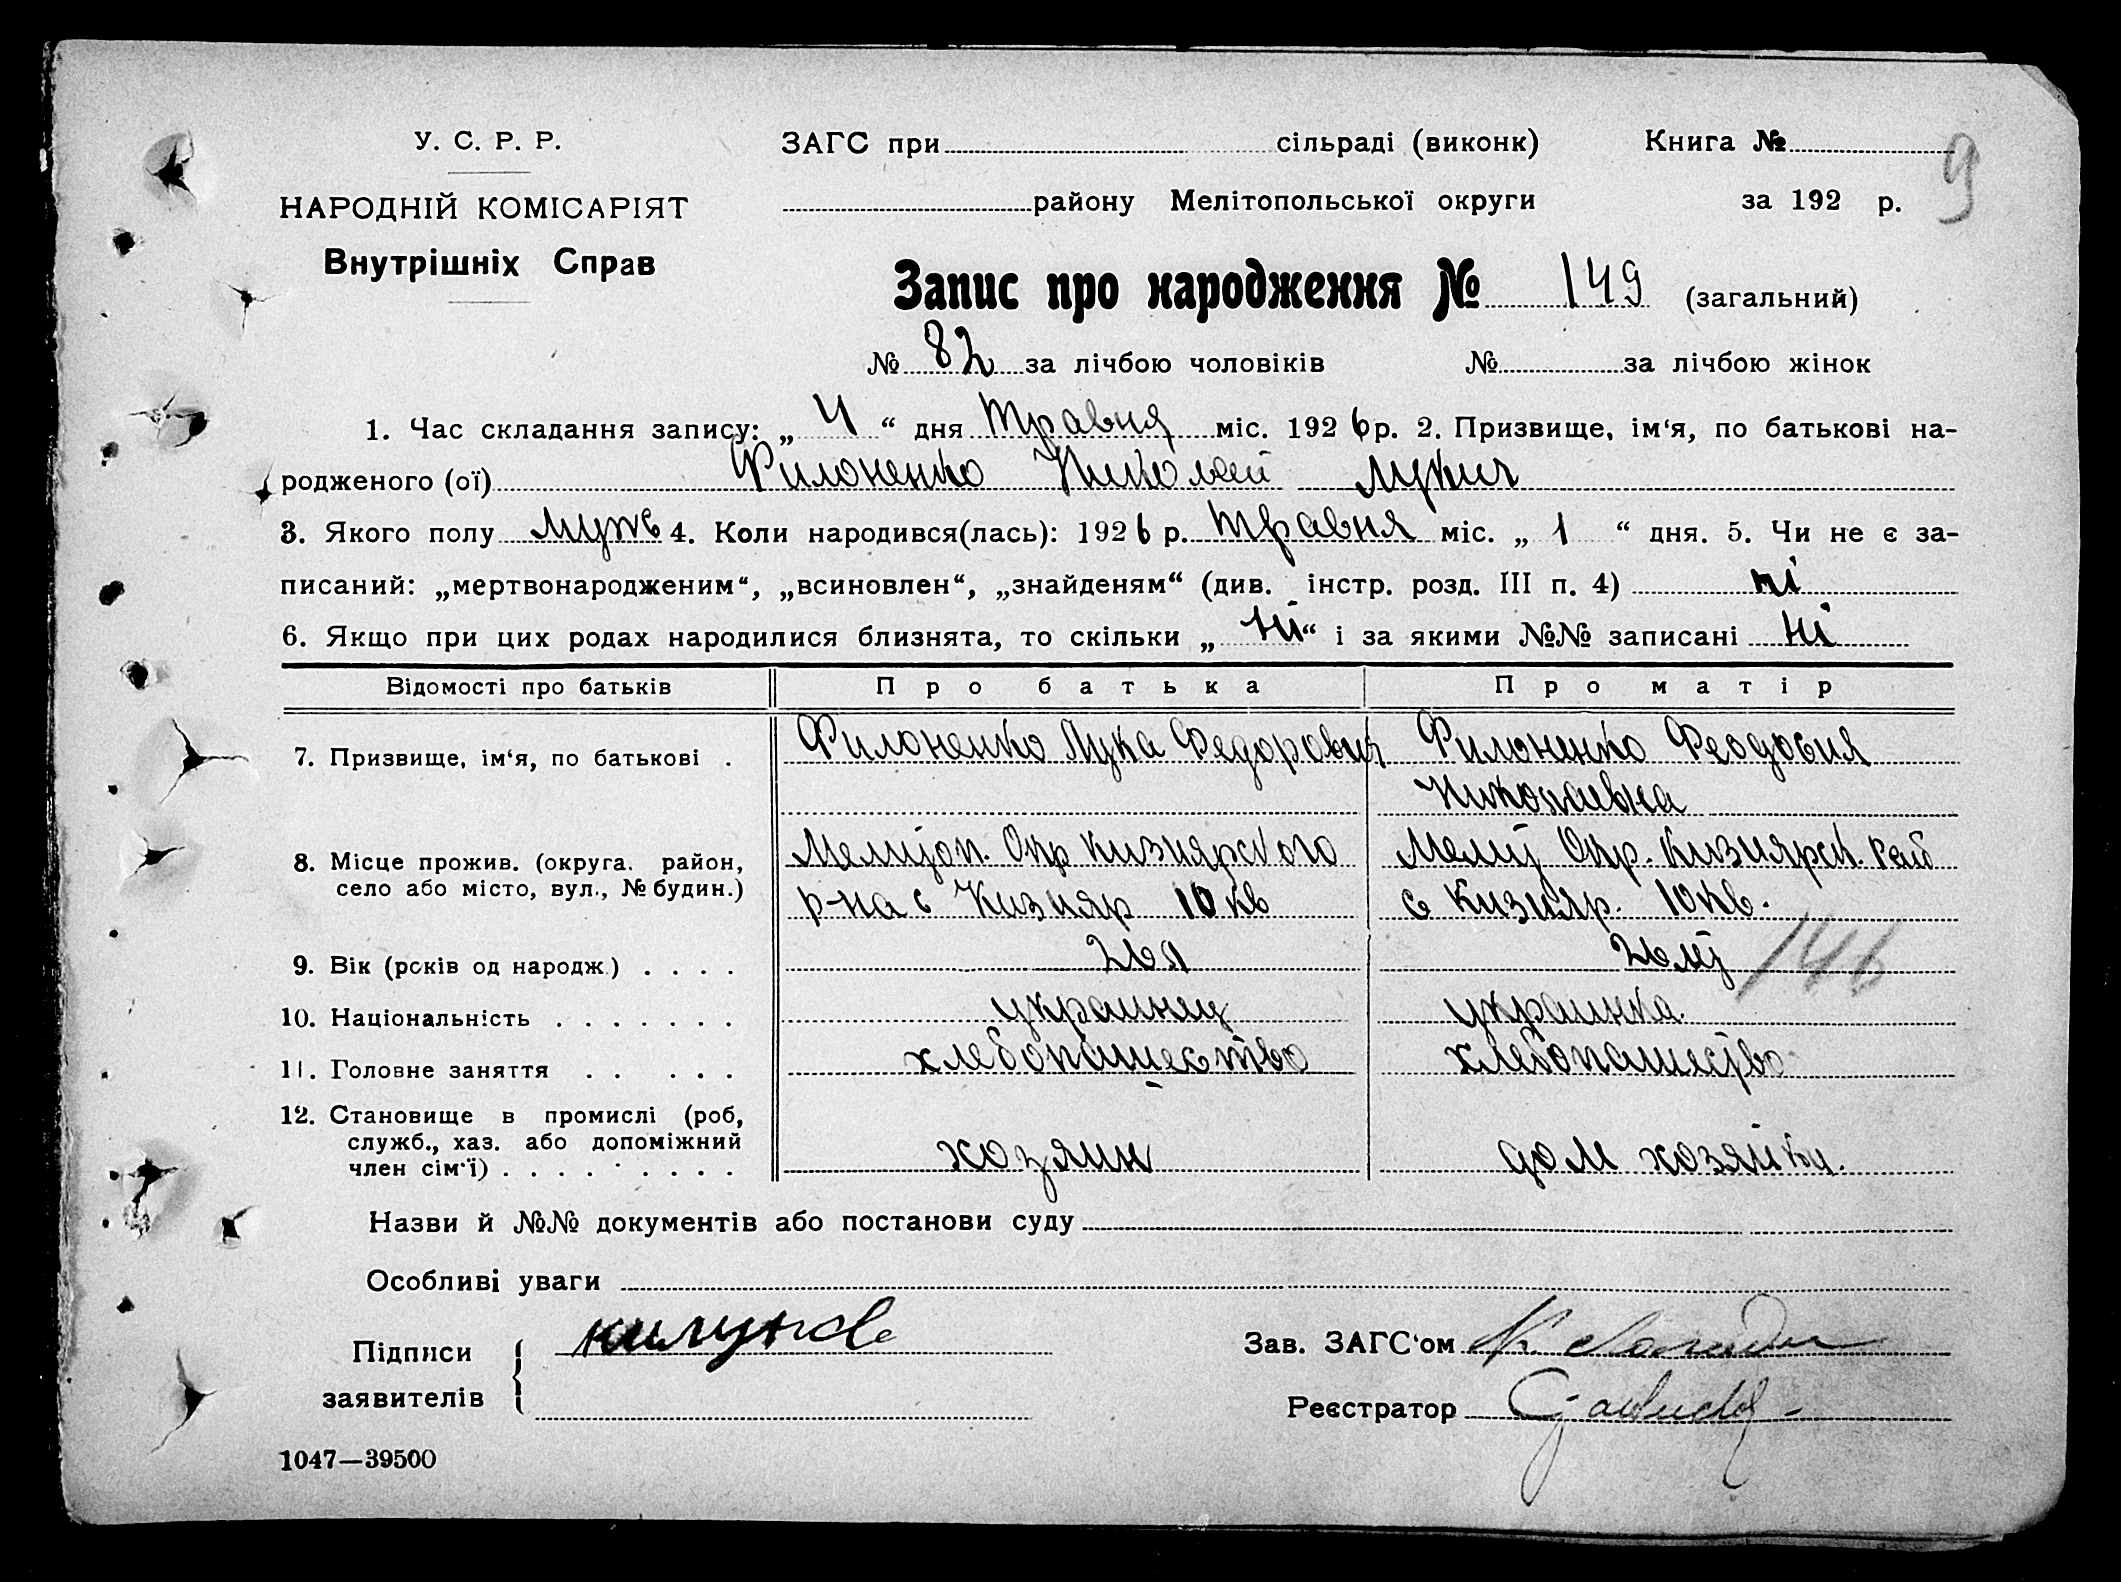 У. С. Р. Р.
ЗАГС при сільраді (виконк) Книга №
9
НАРОДНІЙ КОМІСАРІЯТ
району Мелітопольської округи за 192 р.
Внутрішніх Справ
Запис про народження № 149 (загальний)
№ 82 за лічбою чоловіків № за лічбою жінок
1. Час складання запису: „ 4 “ дня Травня міс. 1926 р. 2. Призвище, ім‘я, по батькові на-
родженого (ої) Филоненко Николай Лукич
3. Якого полу муж 4. Коли народився(лась): 1926 р. Травня міс. „ 1 “ дня. 5. Чи не є за-
писаний: „мертвонародженим“, „всиновлен“, „знайденям“ (див. інстр. розд. III п. 4) ні
6. Якщо при цих родах народилися близнята, то скільки „ ні “ і за якими №№ записані ні
Відомості про батьків Про батька Про матір
7. Призвище, ім‘я, по батькові . Филоненко Лука Федорович Филоненко Феодосия
Николаевна
8. Місце прожив. (округа. район, Мелитоп. Окр Кизиярского Мелит Окр. Кизиярск. рай
село або місто, вул., № будин.) р-на с Кизияр 10 кв с Кизияр. 10 кв.
9. Вік (років од народж.) . . . . 26 л 26 лет
146
10. Національність . . . . . . . украинец украинка.
11. Головне заняття . . . . . хлебопашество хлебопашество
12. Становище в промислі (роб,
служб., хаз. або допоміжний
член сім‘ї) . . . . . . . . . хозяин дом хозяйка.
Назви й №№ документів або постанови суду
Особливі уваги
Підписи
заявителів
Зав. ЗАГС‘ом
Реєстратор
1047—39500